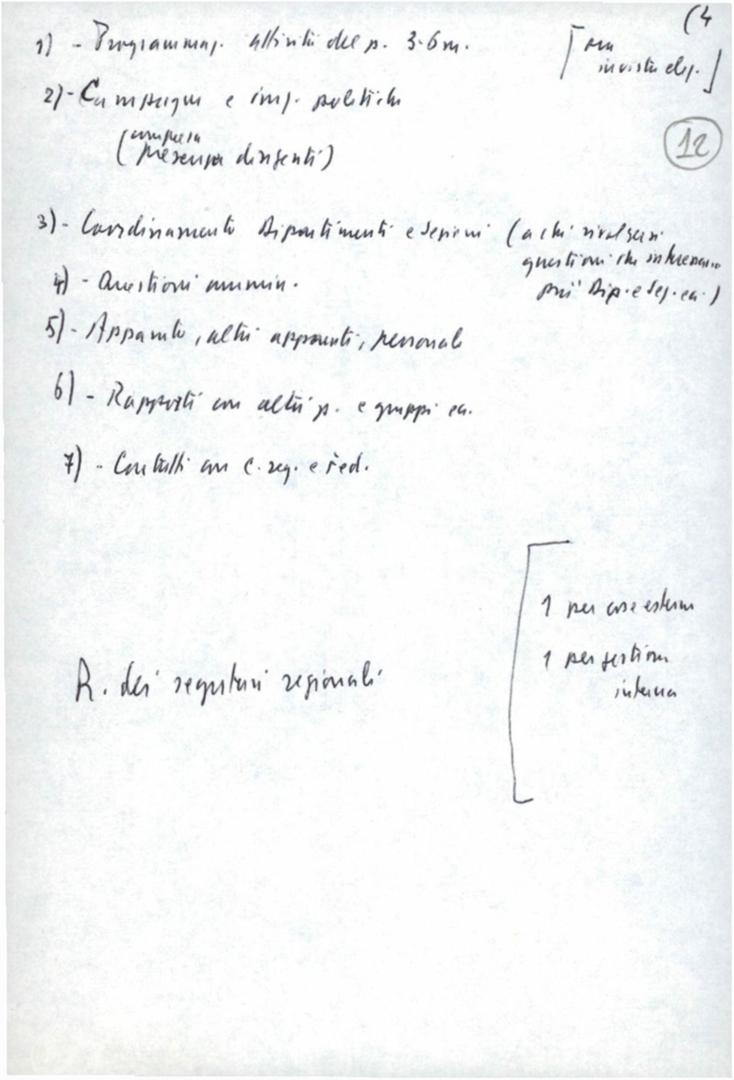 (4
1) - Programmaz. attività del p. 3-6 m.
[ ora
in vista elez. ]
2) - Campagne e imp. politiche
12
(compresa
presenza dirigenti)
3) - Coordinamento Dipartimenti e sezioni (a chi rivolgersi
questioni che interessano
più Dip. e sez. ecc.)
4) - Questioni ammin.
5) - Apparato, altri apparati, personale
6) - Rapporti con altri p. e gruppi ecc.
7) - Contatti con C. reg. e Fed.
1 per cose esterne
1 per gestione
interna
R. dei segretari regionali